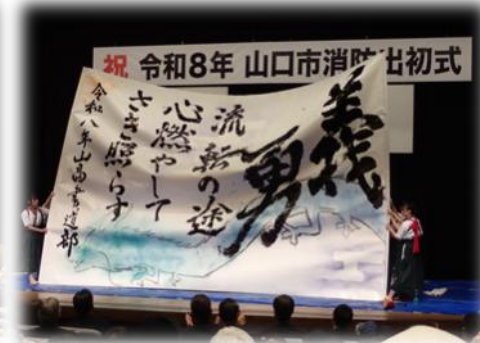 祝 令和8年 山口市消防出初式
義勇
流転の途
心燃やして
さき照らす
令和八年山高書道部